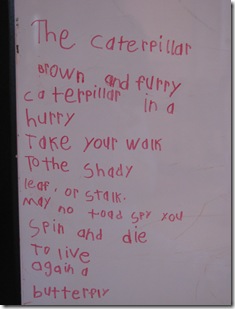 The caterpillar
Brown and furry
caterpillar in a
hurry
Take your walk
To the shady
leaf, or stalk.
may no toad spy you
Spin and die
To live
again a
butterfly